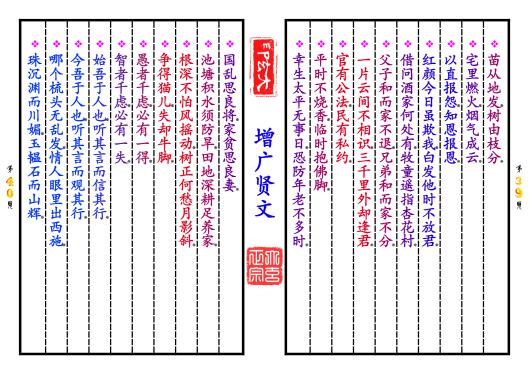 第39页
苗从地发。树由枝分。
宅里燃火。烟气成云。
以直报怨。知恩报恩。
红颜今日虽欺我。白发他时不放君。
借问酒家何处有。牧童遥指杏花村。
父子和而家不退。兄弟和而家不分。
一片云间不相识。三千里外却逢君。
官有公法。民有私约。
平时不烧香。临时抱佛脚。
幸生太平无事日。恐防年老不多时。
增广贤文
国乱思良将。家贫思良妻。
池塘积水须防旱。田地深耕足养家。
根深不怕风摇动。树正何愁月影斜。
争得猫儿。失却牛脚。
愚者千虑。必有一得。
智者千虑。必有一失。
始吾于人也。听其言而信其行。
今吾于人也。听其言而观其行。
哪个梳头无乱发。情人眼里出西施。
珠沉渊而川媚。玉韫石而山辉。
第40页